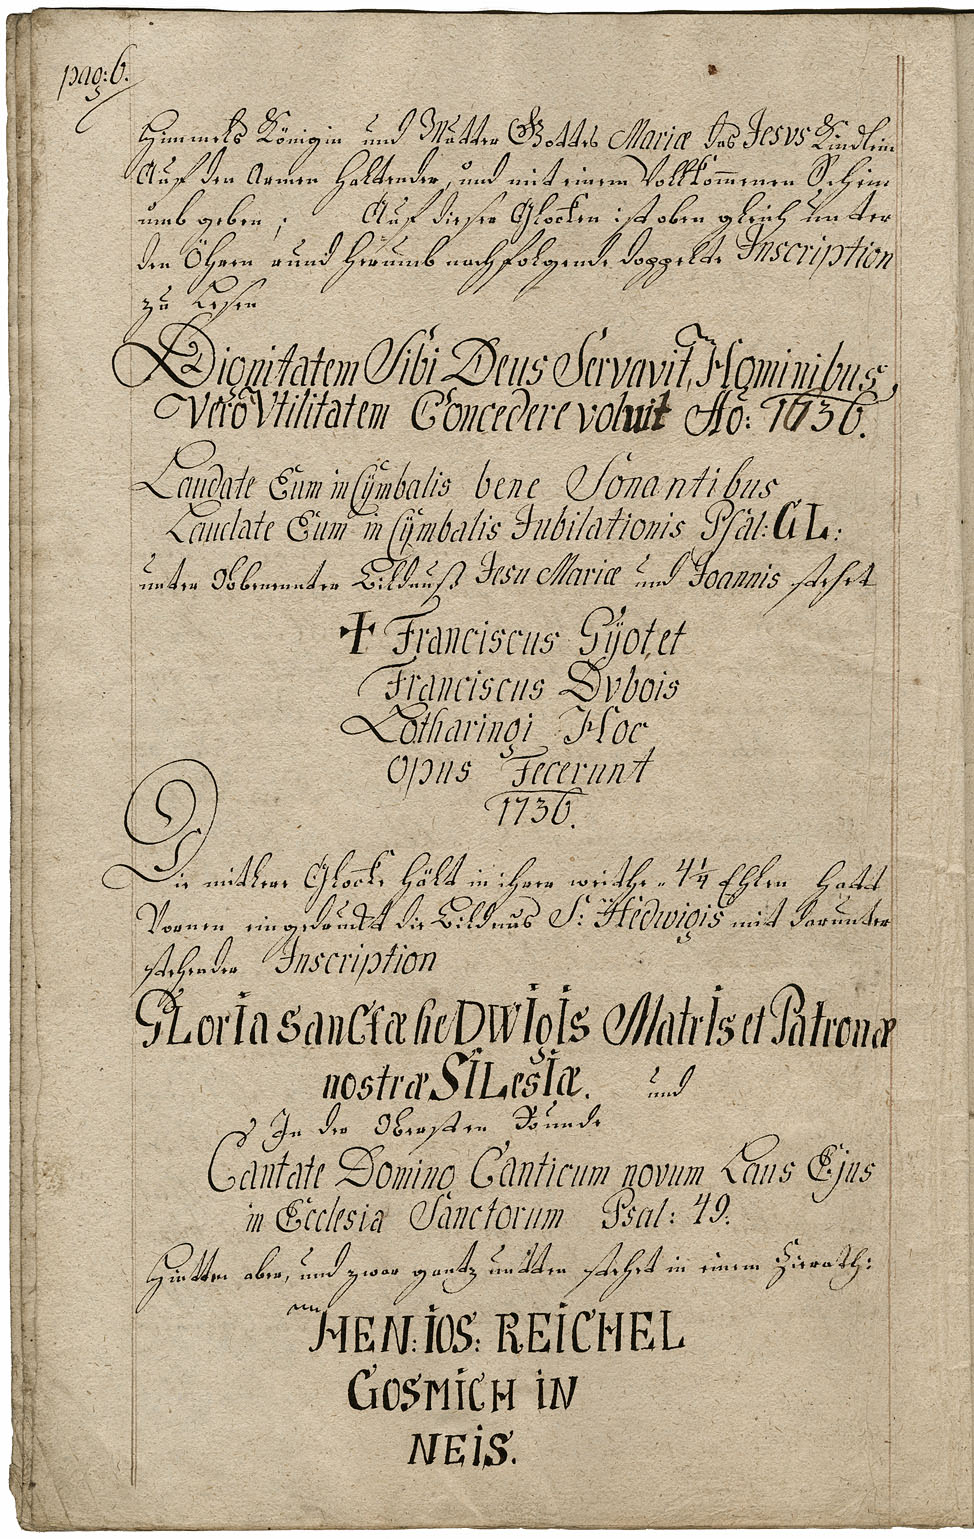 pag: 6.
Himmels Königin und Mutter Gottes Mariæ das Jesvs Kindlein
Auf den Armen Haltender, und mit einem Vollkom̅enen Schein
umb geben ; Auf dieser Glocken ist oben gleich unter
den Öhren rund herumb nachfolgende doppelte Inscription
zu Lesen
Dignitatem Sibi Deus Servavit, Hominibus,
Vero Vtilitatem Concedere voluit Ao: 1736.
Laudate Eum in Cÿmbalis bene Sonantibus
Laudate Eum in Cÿmbalis Jubilationis Psal: CL:
unter Obbenennter Bildnuß Jesu Mariæ und Joannis stehet
✝ Franciscus Gÿot, et
Franciscus Dvbois
Lotharingi Hoc
Opus Fecerunt
1736.
Die mitlere Glocke hält in ihrer weithe 4¼ Ehlen hatt
Vornen eingedruckt die Bildnus S: Hedwigis mit darunter
stehender Inscription
GLorIa SanCtæ heDWIgIs MatrIs et Patronæ
nostræ SILesIæ. und
In der Obersten Runde
Cantate Domino Canticum novum Laus Ejus
in Ecclesia Sanctorum Psal: 49.
Hintten aber, und zwar gantz untten stehet in einem Zierath:
HEN: IOS: REICHEL
GOSMICH IN
NEIS.